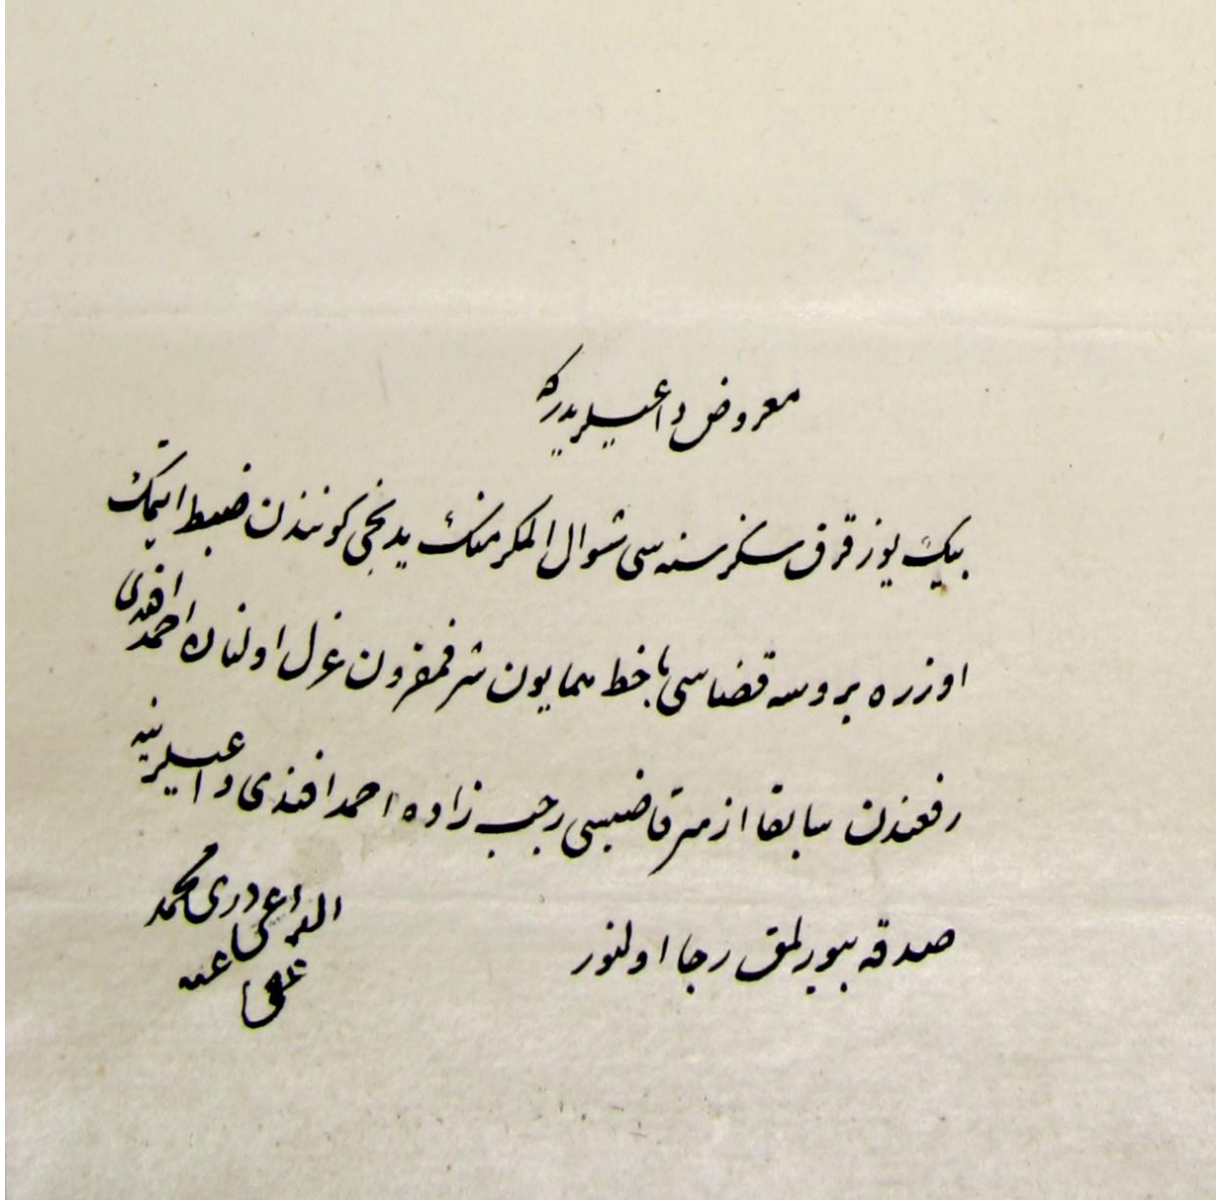 معروض داعيلريدركه
بيك يوز قرق سكز سنه سى شوال المكرمنك يدنجى كونندن ضبط ايتمك
اوزره بروسه قضاسى با خط همايون شرفمقرون عزل اولنان احمد افندى
رفعندن سابقا ازمير قاضيسى رجب زاده احمد افندى داعيلرينه
صدقه بيورلمق رجا اولنور
الداعى درى محمد
عفى عنه